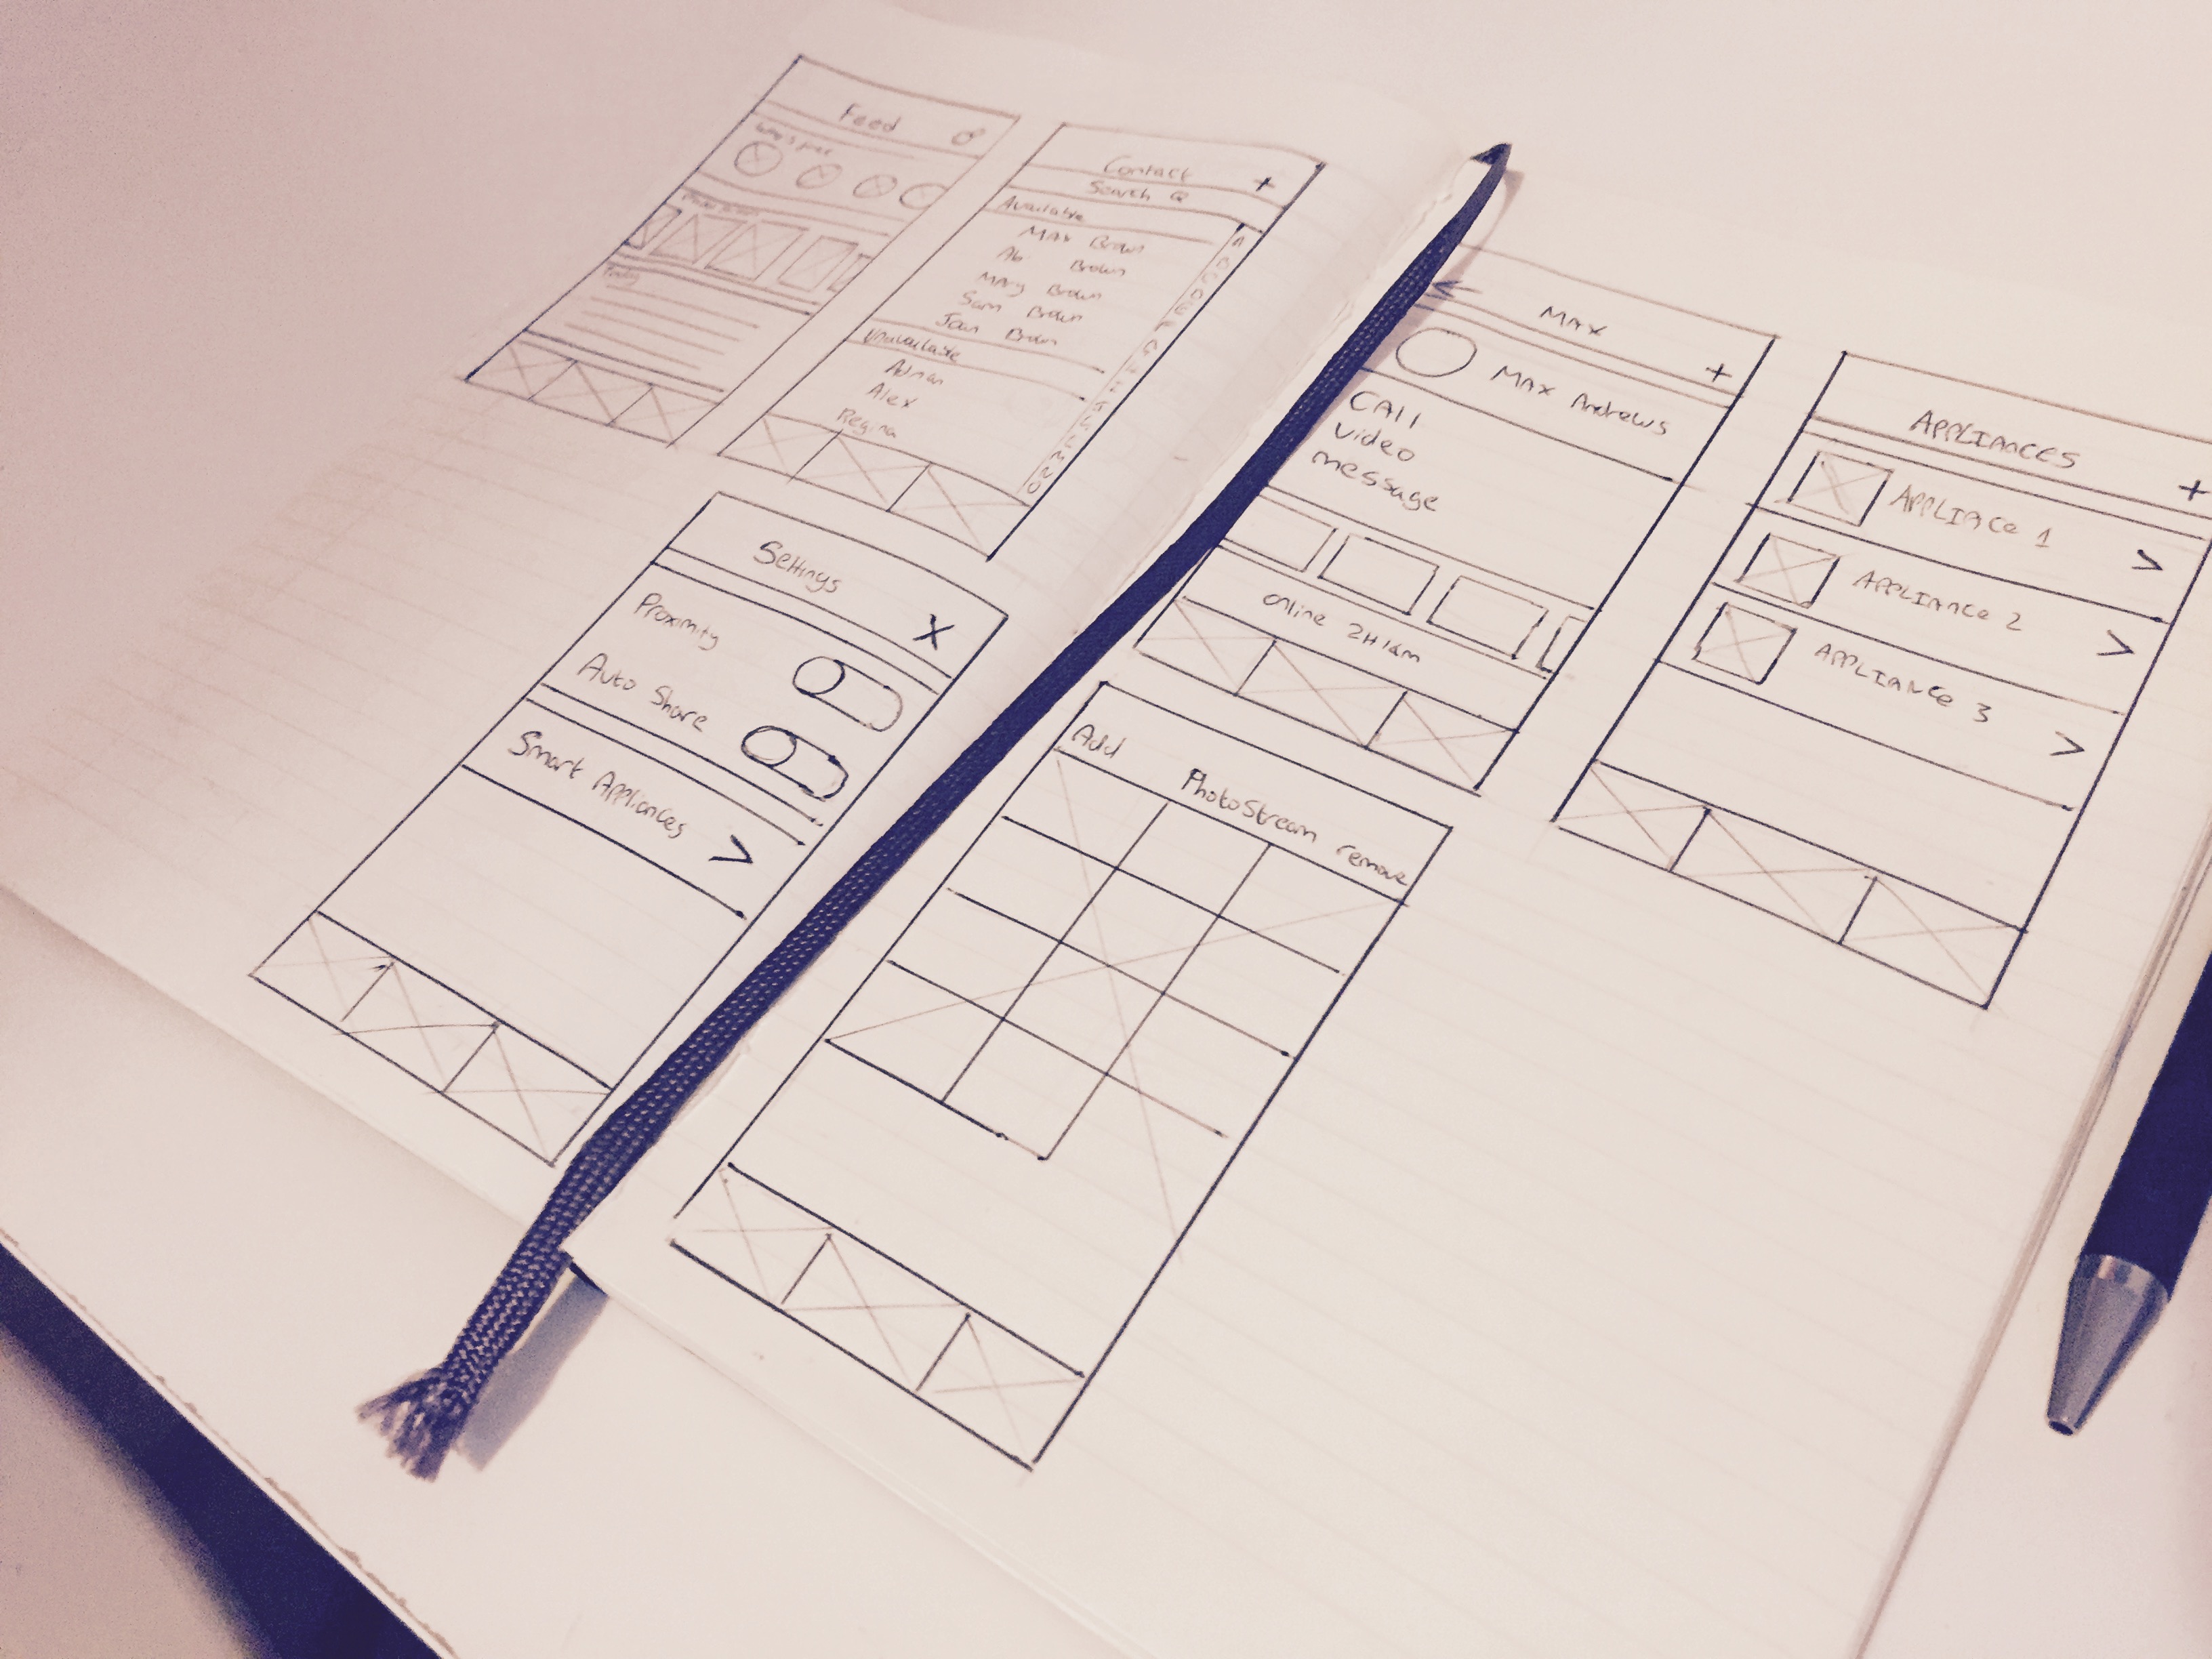 Feed
Today
Contact +
Search
Available
MAX Brown
Abi Brown
MAry Brown
Sam Brown
Joan Brown
Unavailable
Adrian
Alex
Regina
A
B
C
D
E
F
G
Settings X
Proximity
Auto Share
Smart Appliances >
MAX +
MAX Andrews
CAll
Video
message
online 2H 16m
Add PhotoStream remove
APPLIAnCES +
APPLIAnce 1 >
APPLIAnce 2 >
APPLIAnce 3 >